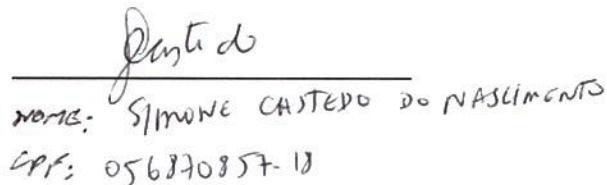 Castedo
NOME: SIMONE CASTEDO DO NASCIMENTO
CPF: 056870857-18